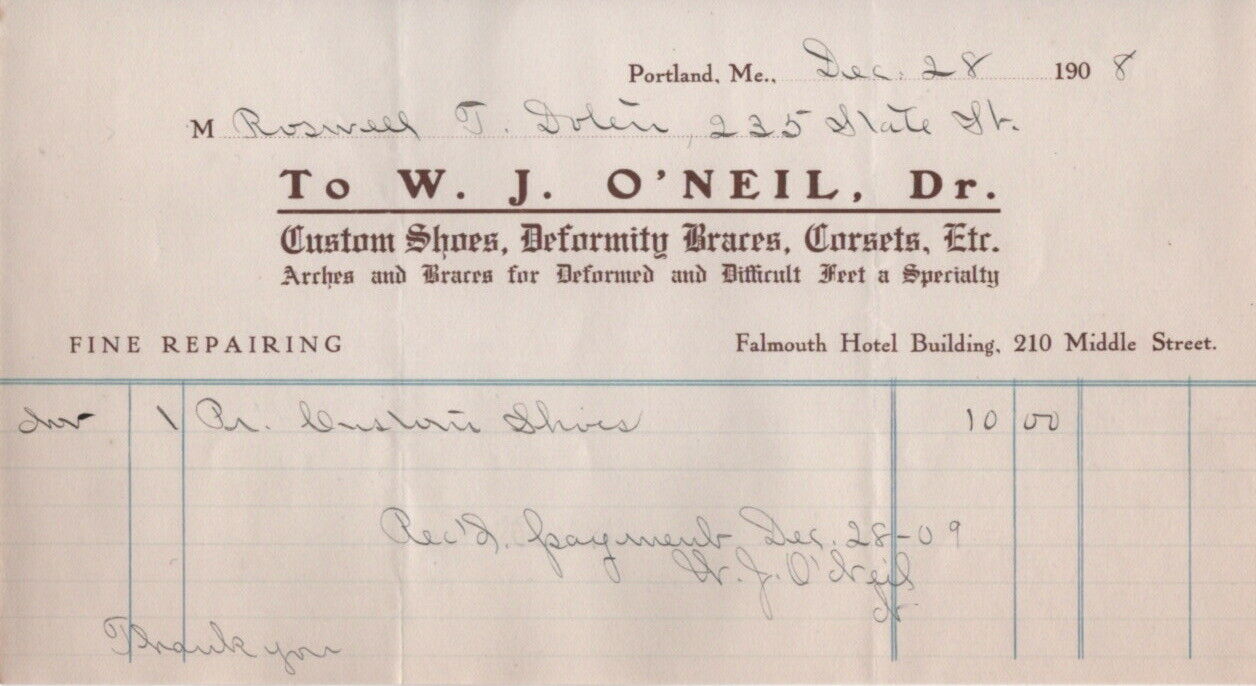 Portland, Me., Dec. 28 1908
M Roswell T. Dolen, 235 State St.
To W. J. O'NEIL, Dr.
Custom Shoes, Deformity Braces, Corsets, Etc.
Arches and Braces for Deformed and Difficult Feet a Specialty
FINE REPAIRING Falmouth Hotel Building, 210 Middle Street.
1 Pr. Custom Shoes 10 00
Rec'd. payment Dec. 28-09
W. J. O'Neil
Thank you